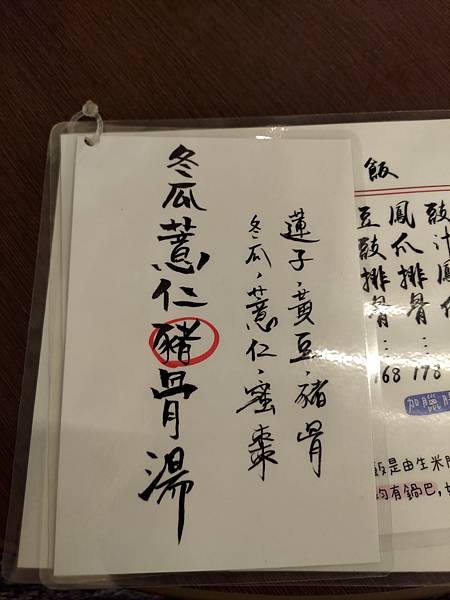 冬瓜薏仁豬骨湯
蓮子、黃豆、豬骨
冬瓜、薏仁、蜜棗
飯
豉汁鳳
鳳爪排骨⋮178
豆豉排骨⋮168
加臘腸
飯是由生米
均有鍋巴,